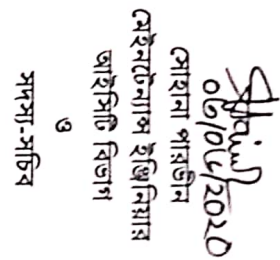 সোহানা পারভীন
মেইনটেন্যান্স ইঞ্জিনিয়ার
আইসিটি বিভাগ
ও
সদস্য-সচিব